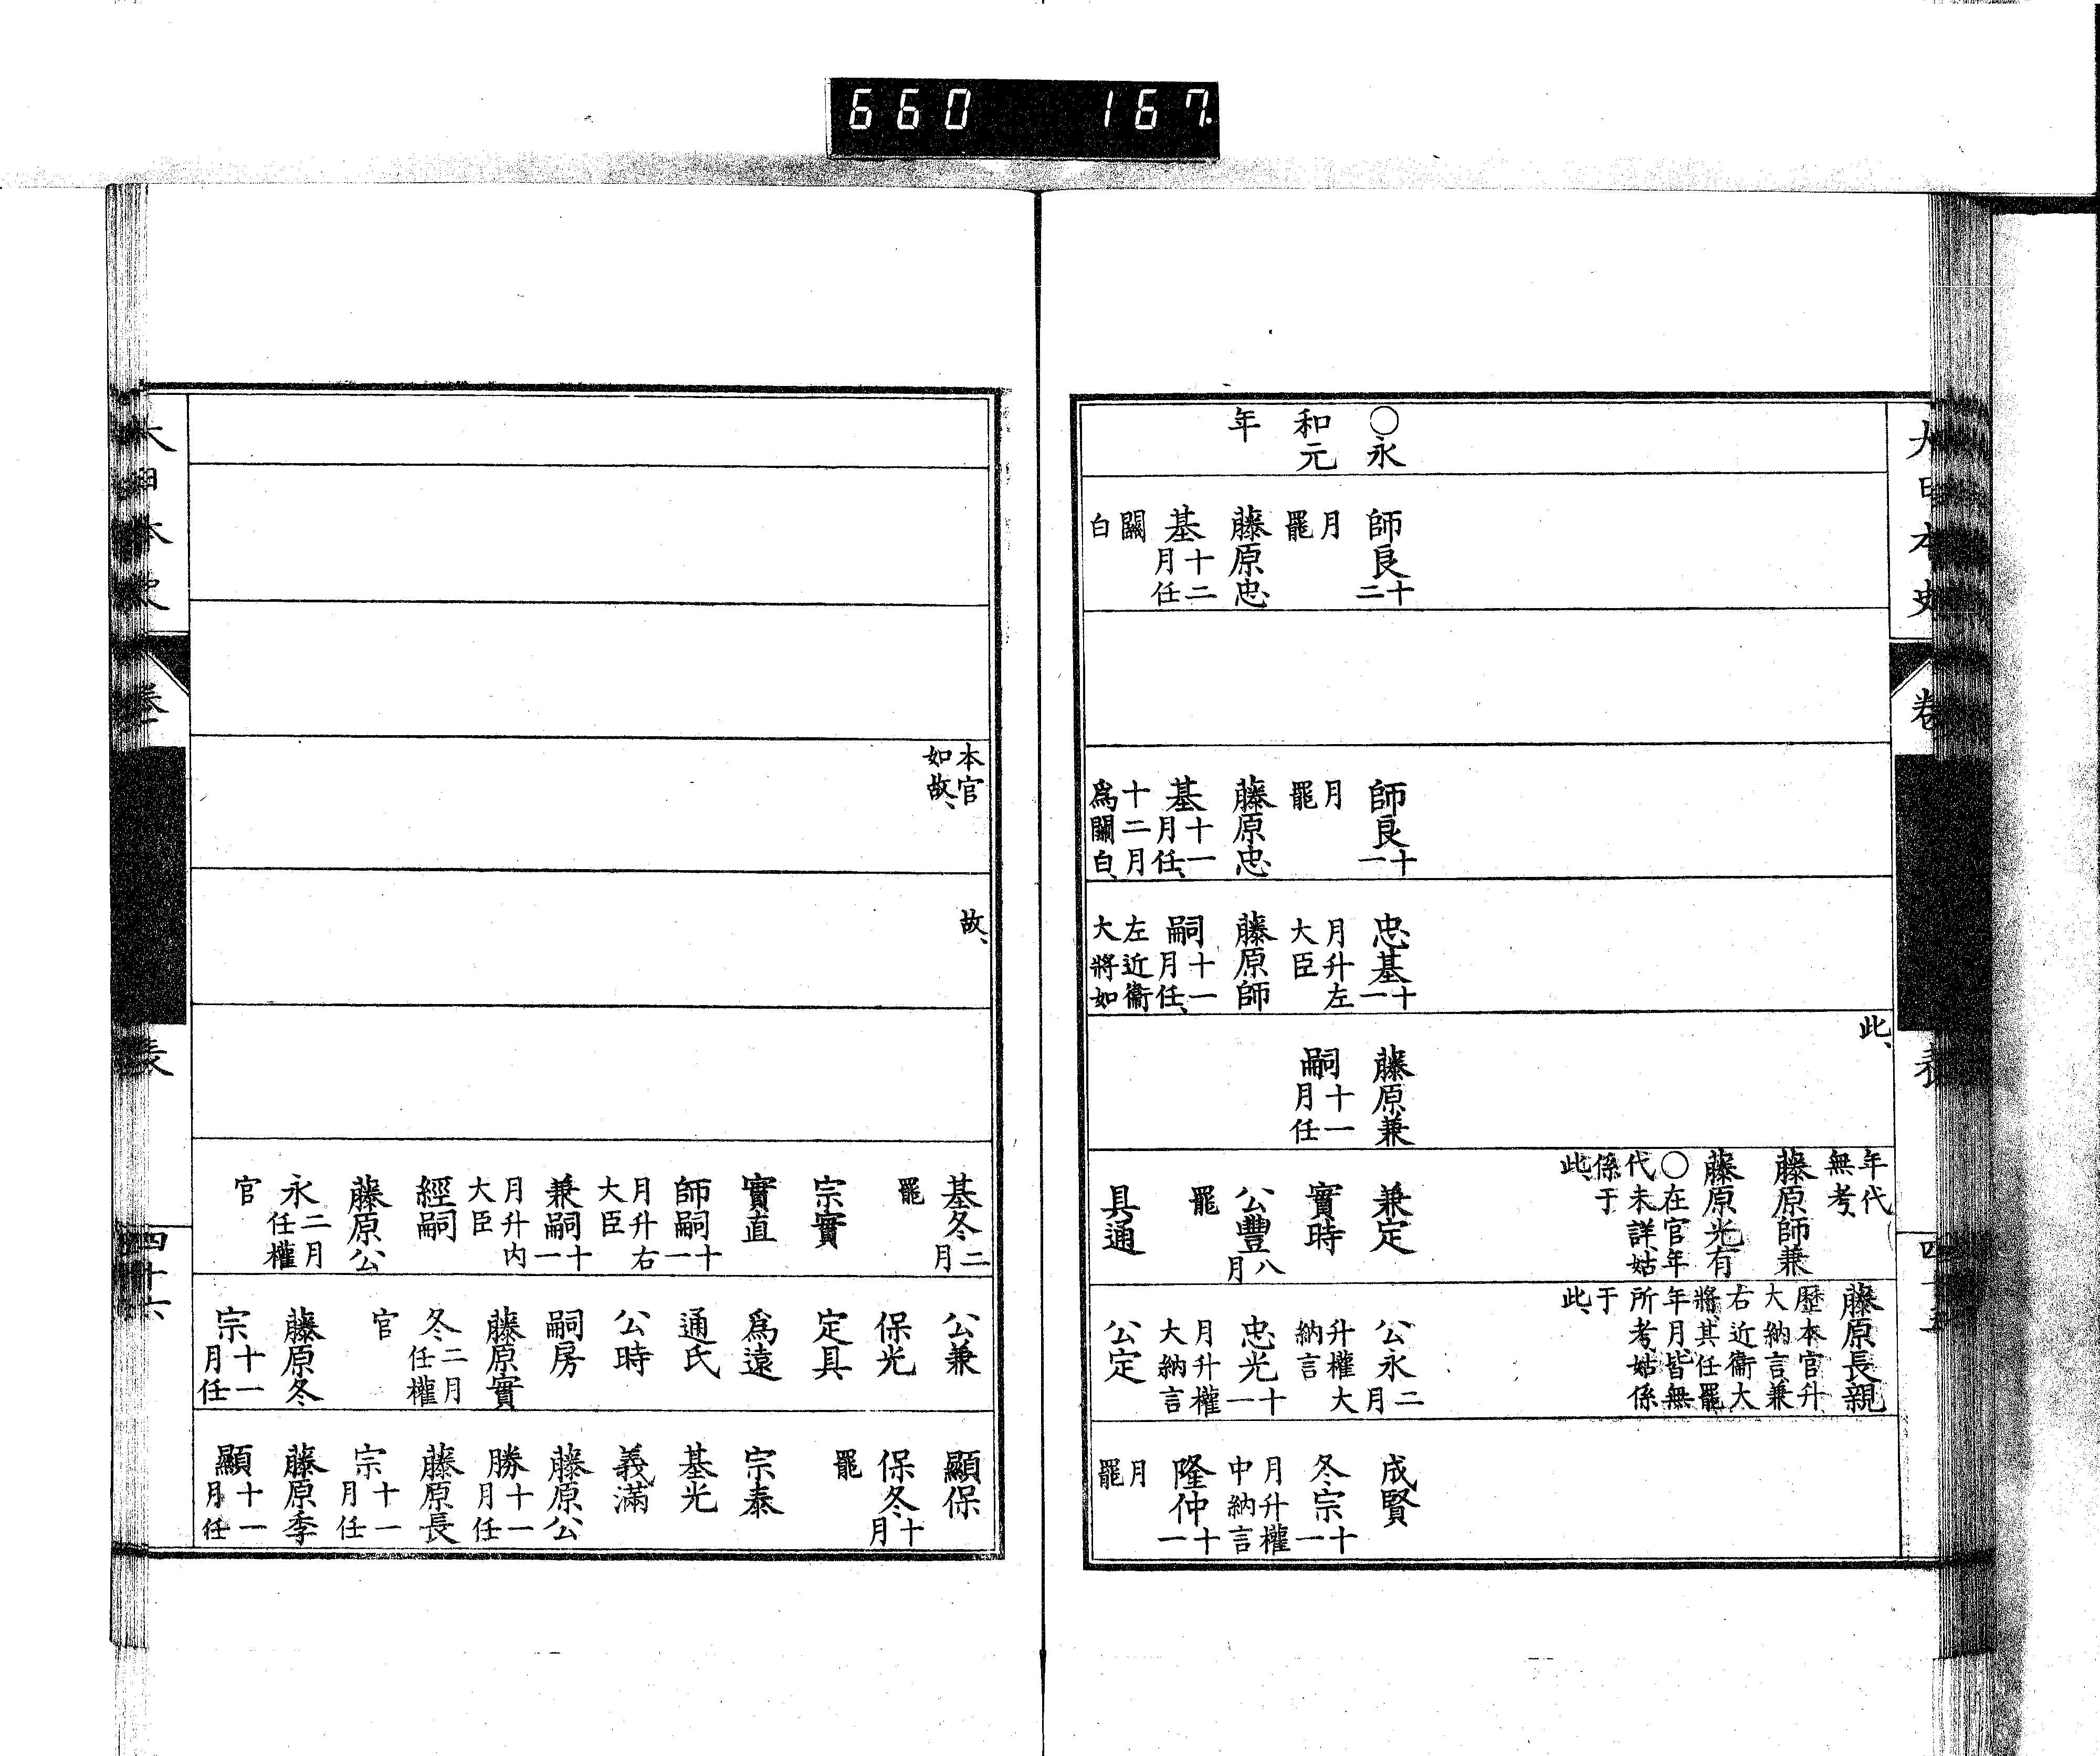 大日本史 卷 表 四十五
○永
和元
年
師良十二
月罷
藤原忠
基十二月任
關白
師良十一
月罷
藤原忠
基十一月任、
十二月爲關白、
忠基十一
月升左大臣
藤原師
嗣十一月任、
左近衞大將如
此、
藤原兼
嗣十一月任
年代無考、
藤原師兼
藤原光有
○在官年代未詳、姑
係于此、
兼定
實時
公豐八月
罷
具通
藤原長親
歷本官升大納言、兼
右近衞大將、其任罷
年月、皆無所考、姑係
于此、
公永二月
升權大納言
忠光十一
月升權大納言
公定
成賢
冬宗十一
月升權中納言
隆仲十一
月罷
本官如故、
故、
基冬二月
罷
宗實
實直
師嗣十一
月升右大臣
兼嗣十一
月升内大臣
經嗣
藤原公
永二月任權
官
公兼
保光
定具
爲遠
通氏
公時
嗣房
藤原實
冬二月任權
官
藤原冬
宗十一月任
顯保
保冬十月
罷
宗泰
基光
義滿
藤原公
勝十一月任
藤原長
宗十一月任
藤原季
顯十一月任
大日本史 卷 表 四十六